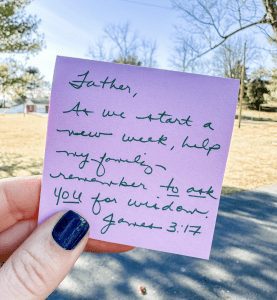 Father,
As we start a
new week, help
my family
remember to ask
you for wisdom.
James 3:17